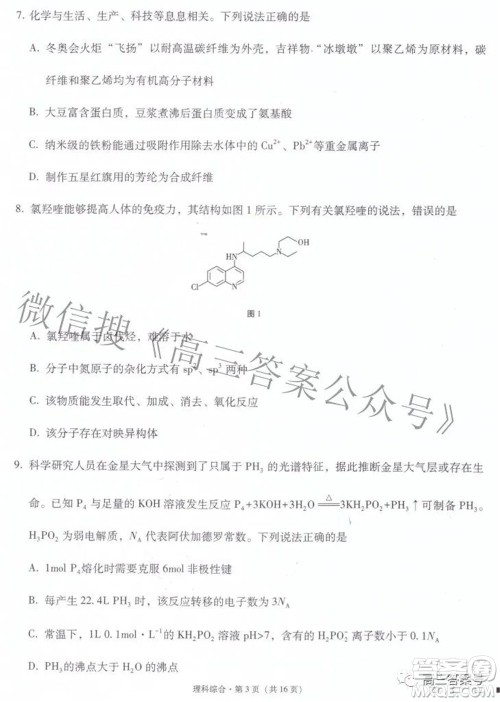 7. 化学与生活、生产、科技等息息相关。下列说法正确的是
A. 冬奥会火炬“飞扬”以耐高温碳纤维为外壳，吉祥物“冰墩墩”以聚乙烯为原材料，碳
纤维和聚乙烯均为有机高分子材料
B. 大豆富含蛋白质，豆浆煮沸后蛋白质变成了氨基酸
C. 纳米级的铁粉能通过吸附作用除去水体中的 Cu²⁺、Pb²⁺等重金属离子
D. 制作五星红旗用的芳纶为合成纤维
8. 氯羟喹能够提高人体的免疫力，其结构如图 1 所示。下列有关氯羟喹的说法，错误的是
OH
HN
N
Cl
N
图 1
A. 氯羟喹属于卤代烃，难溶于水
B. 分子中氮原子的杂化方式有 sp²、sp³ 两种
C. 该物质能发生取代、加成、消去、氧化反应
D. 该分子存在对映异构体
9. 科学研究人员在金星大气中探测到了只属于 PH₃ 的光谱特征，据此推断金星大气层或存在生
命。已知 P₄ 与足量的 KOH 溶液发生反应 P₄+3KOH+3H₂O ══△══ 3KH₂PO₂+PH₃↑可制备PH₃。
H₃PO₂ 为弱电解质，N_A 代表阿伏加德罗常数。下列说法正确的是
A. 1mol P₄熔化时需要克服 6mol 非极性键
B. 每产生 22.4L PH₃ 时，该反应转移的电子数为 3N_A
C. 常温下，1L 0.1mol·L⁻¹的 KH₂PO₂ 溶液 pH>7，含有 H₂PO₂⁻ 离子数小于 0.1N_A
D. PH₃的沸点大于 H₂O 的沸点
理科综合·第 3 页（共 16 页）
微信搜《高三答案公众号》
高三答案号